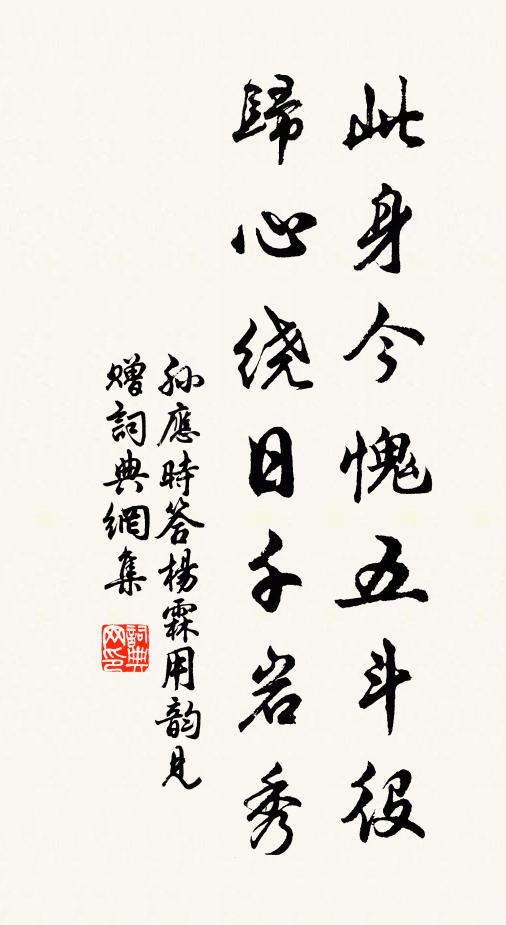 此身今愧五斗役
歸心绕日千岩秀
孙應時答楊霖用韵見
赠詞典網集
詞典
网印